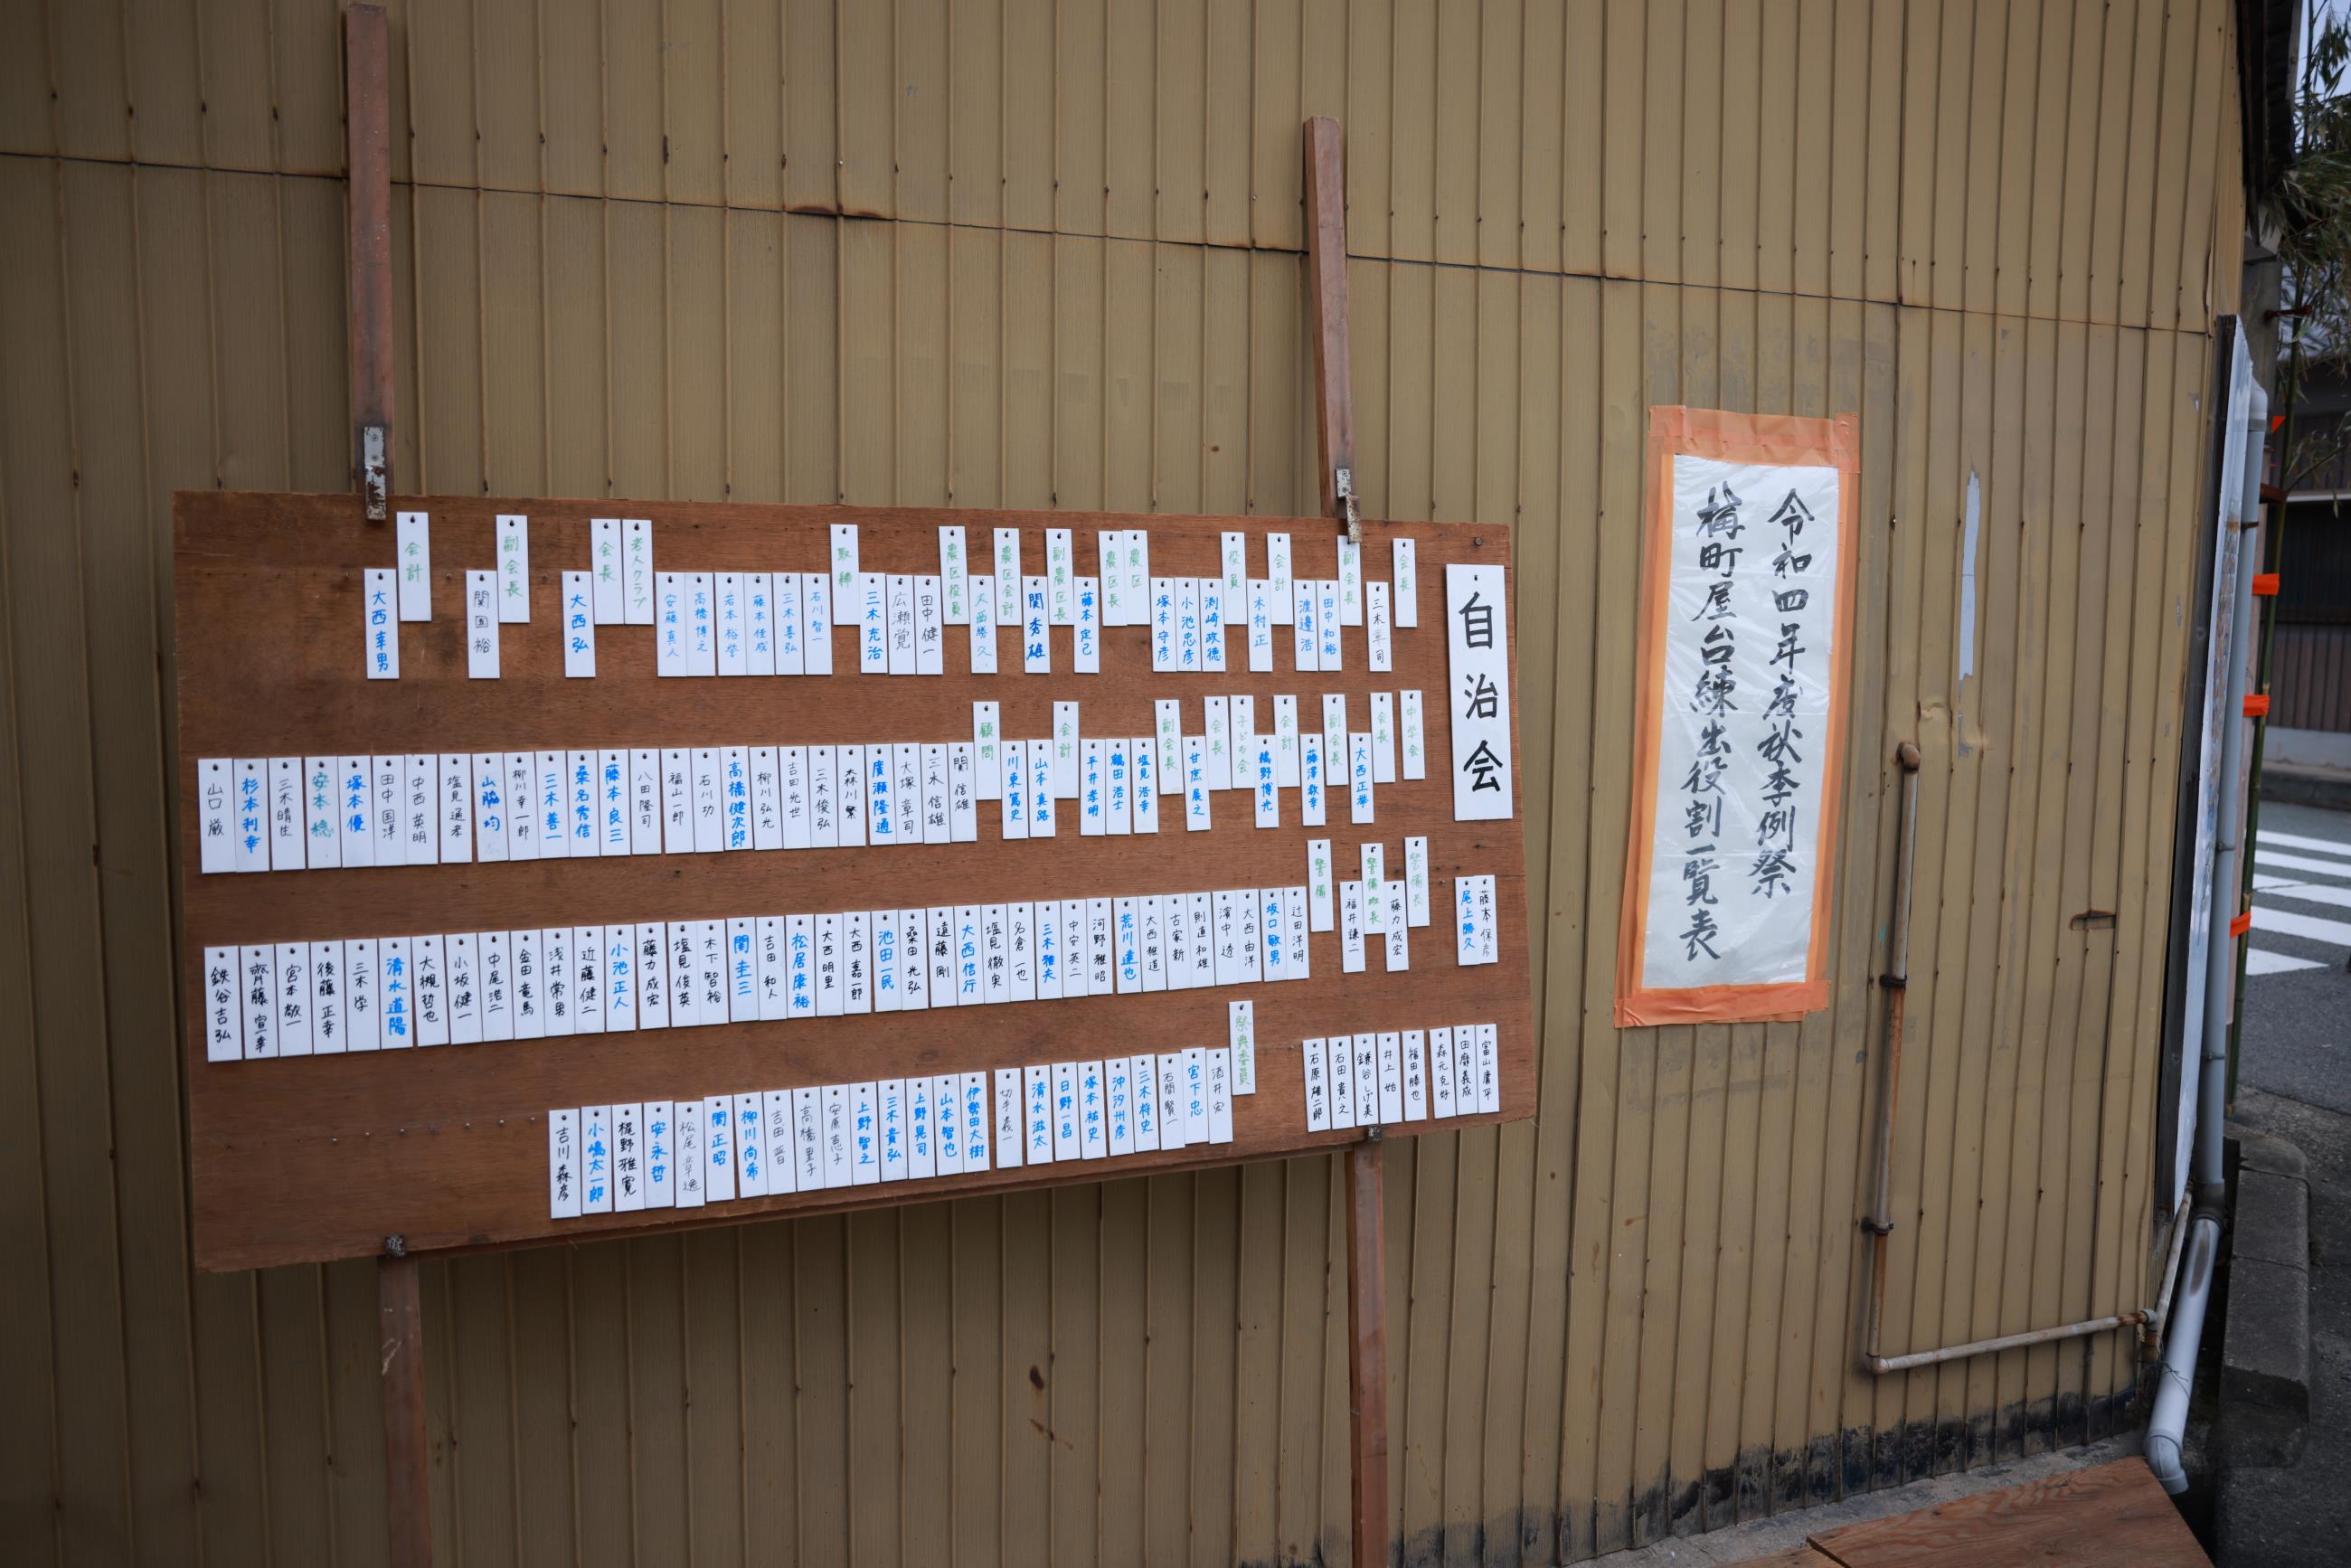 令和四年度秋季例祭
町屋台練出役割一覧表
自治会
会長
三木
司
副会長
田中和裕
渡邊浩
会計
木村正
役員
渕崎政徳
小池忠彦
塚本守彦
農区
農区長
藤本定己
副農区長
関秀雄
農区会計
大西勝久
農区役員
田中健一
広瀬覚
三木充治
取締
石川智一
三木善弘
藤本佳成
岩本裕誉
高橋博之
安藤真人
老人クラブ
会長
大西弘
副会長
関国裕
会計
大西幸男
中学会
会長
大西正挙
副会長
藤澤教幸
会計
鵜野博光
子ども会
会長
甘庶展之
副会長
塩見浩幸
鶴田浩士
平井孝明
会計
山本真路
川東篤史
顧問
関信雄
三木信雄
大塚章司
廣瀬隆通
森川繁
三木俊弘
吉田光世
柳川弘光
高橋健次郎
石川功
福山一郎
八田隆司
藤本良三
桑名秀信
三木善一
柳川幸一郎
山脇均
塩見通孝
中西英明
田中国洋
塚本優
安本穂
三木晴生
杉本利幸
山口厳
藤本保彦
尾上勝久
警備長
藤力成宏
警備班長
福井謙二
警備
辻田洋明
坂口敏男
大西由洋
濱中透
則直和雄
古家新
大西雅道
荒川達也
河野雅昭
中安英二
三木雅夫
名倉一也
塩見徹実
大西信行
遠藤剛
桑田光弘
池田一民
大西嘉一郎
大西明里
松居康裕
吉田和人
関圭三
木下智裕
塩見俊英
藤力成宏
小池正人
近藤健二
浅井常男
金田竜馬
中尾浩二
小坂健一
大槻哲也
清水道陽
三木学
後藤正幸
宮本敬一
齊藤宣幸
鉄谷吉弘
富山庸平
田靡義成
森元克好
福田勝也
井上始
鎌谷しげ美
石田貴之
石原雄二郎
祭典委員
酒井宏
宮下忠
石間賢一
三木将史
沖汐州彦
塚本祐史
日野一昌
清水滋太
切手義一
伊勢田大樹
山本智也
上野晃司
三木貴弘
上野智之
安原恵子
高橋里子
吉田晋
柳川尚希
関正昭
松尾幸逸
安永哲
梶野雅寛
小嶋太一郎
吉川森彦